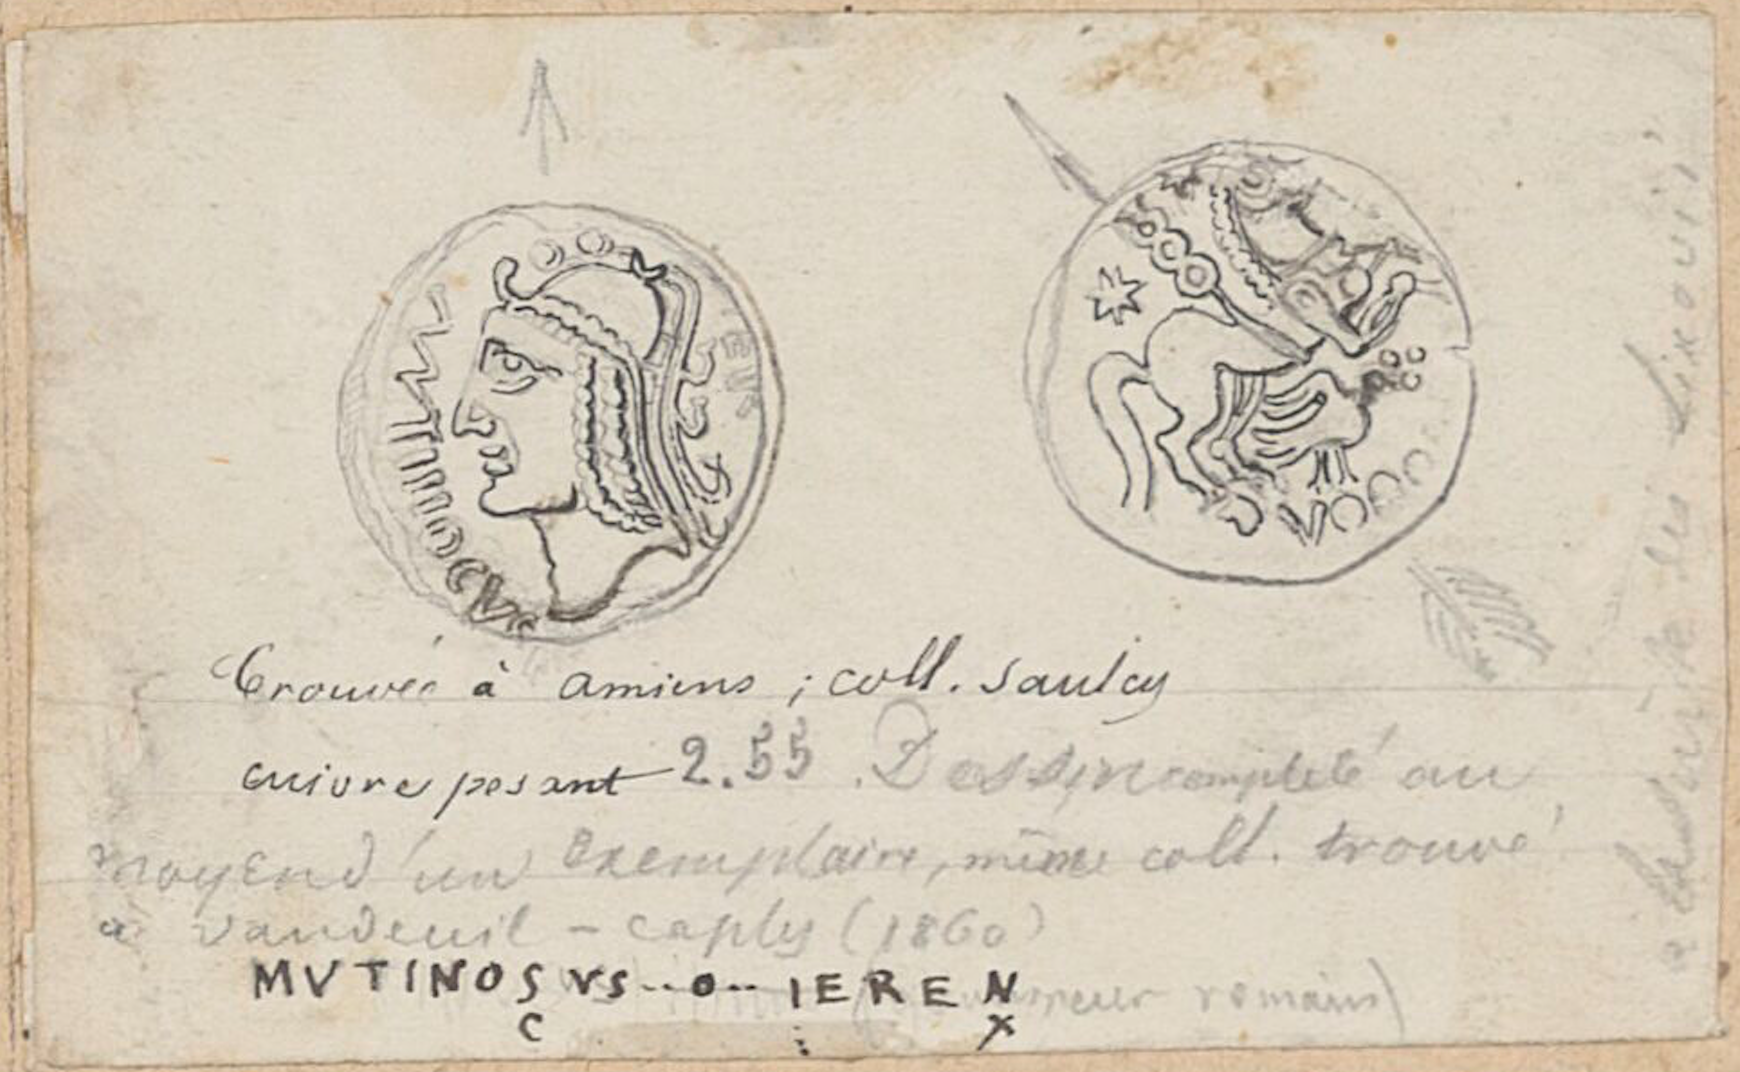 trouvée à amiens ; coll. Saulcy
cuivre pesant 2.55. Dessin complété au
moyen d'un exemplaire, même coll. trouvé
à Vandeuil - caply (1860)
MVTINOS VS .. o .. IEREN
C : X
romain)
des Lixovii